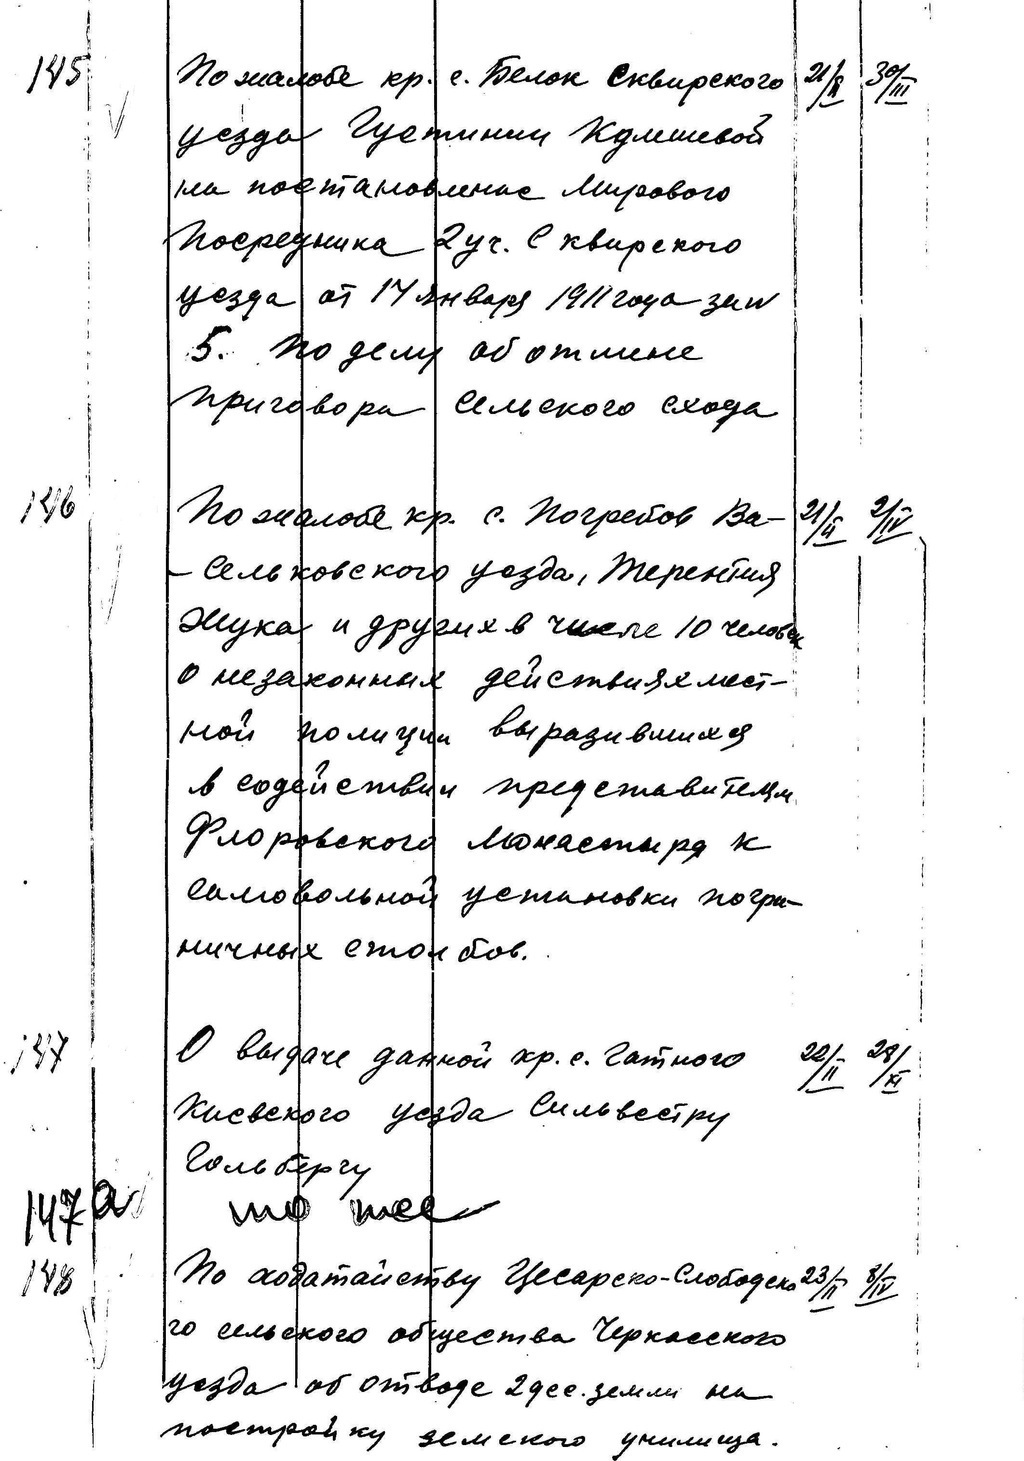 145 По жалобе кр. с. Белок Сквирского 21/II 30/III
уезда Густинии Климшевой
на постановление Мирового
Посредника 2 уч. Сквирского
уезда от 17 января 1911 года за №
5. По делу об отмене
приговора сельского схода
146 По жалобе кр. с. Погребов Ва- 21/II 2/IV
-сельковского уезда, Терентия
Жука и других в числе 10 человек
о незаконных действиях мест-
ной полиции выразившихся
в содействии представителям
Флоровского монастыря к
самовольной установки погра-
ничных столбов.
147 О выдаче данной кр. с. Гатного 22/II 28/XI
Киевского уезда Сильвестру
Гольбергу
147а то же
148 По ходатайству Цесарско-Слободско 23/II 8/IV
го сельского общества Черкасского
уезда об отводе 2 дес. земли на
постройку земского училища.